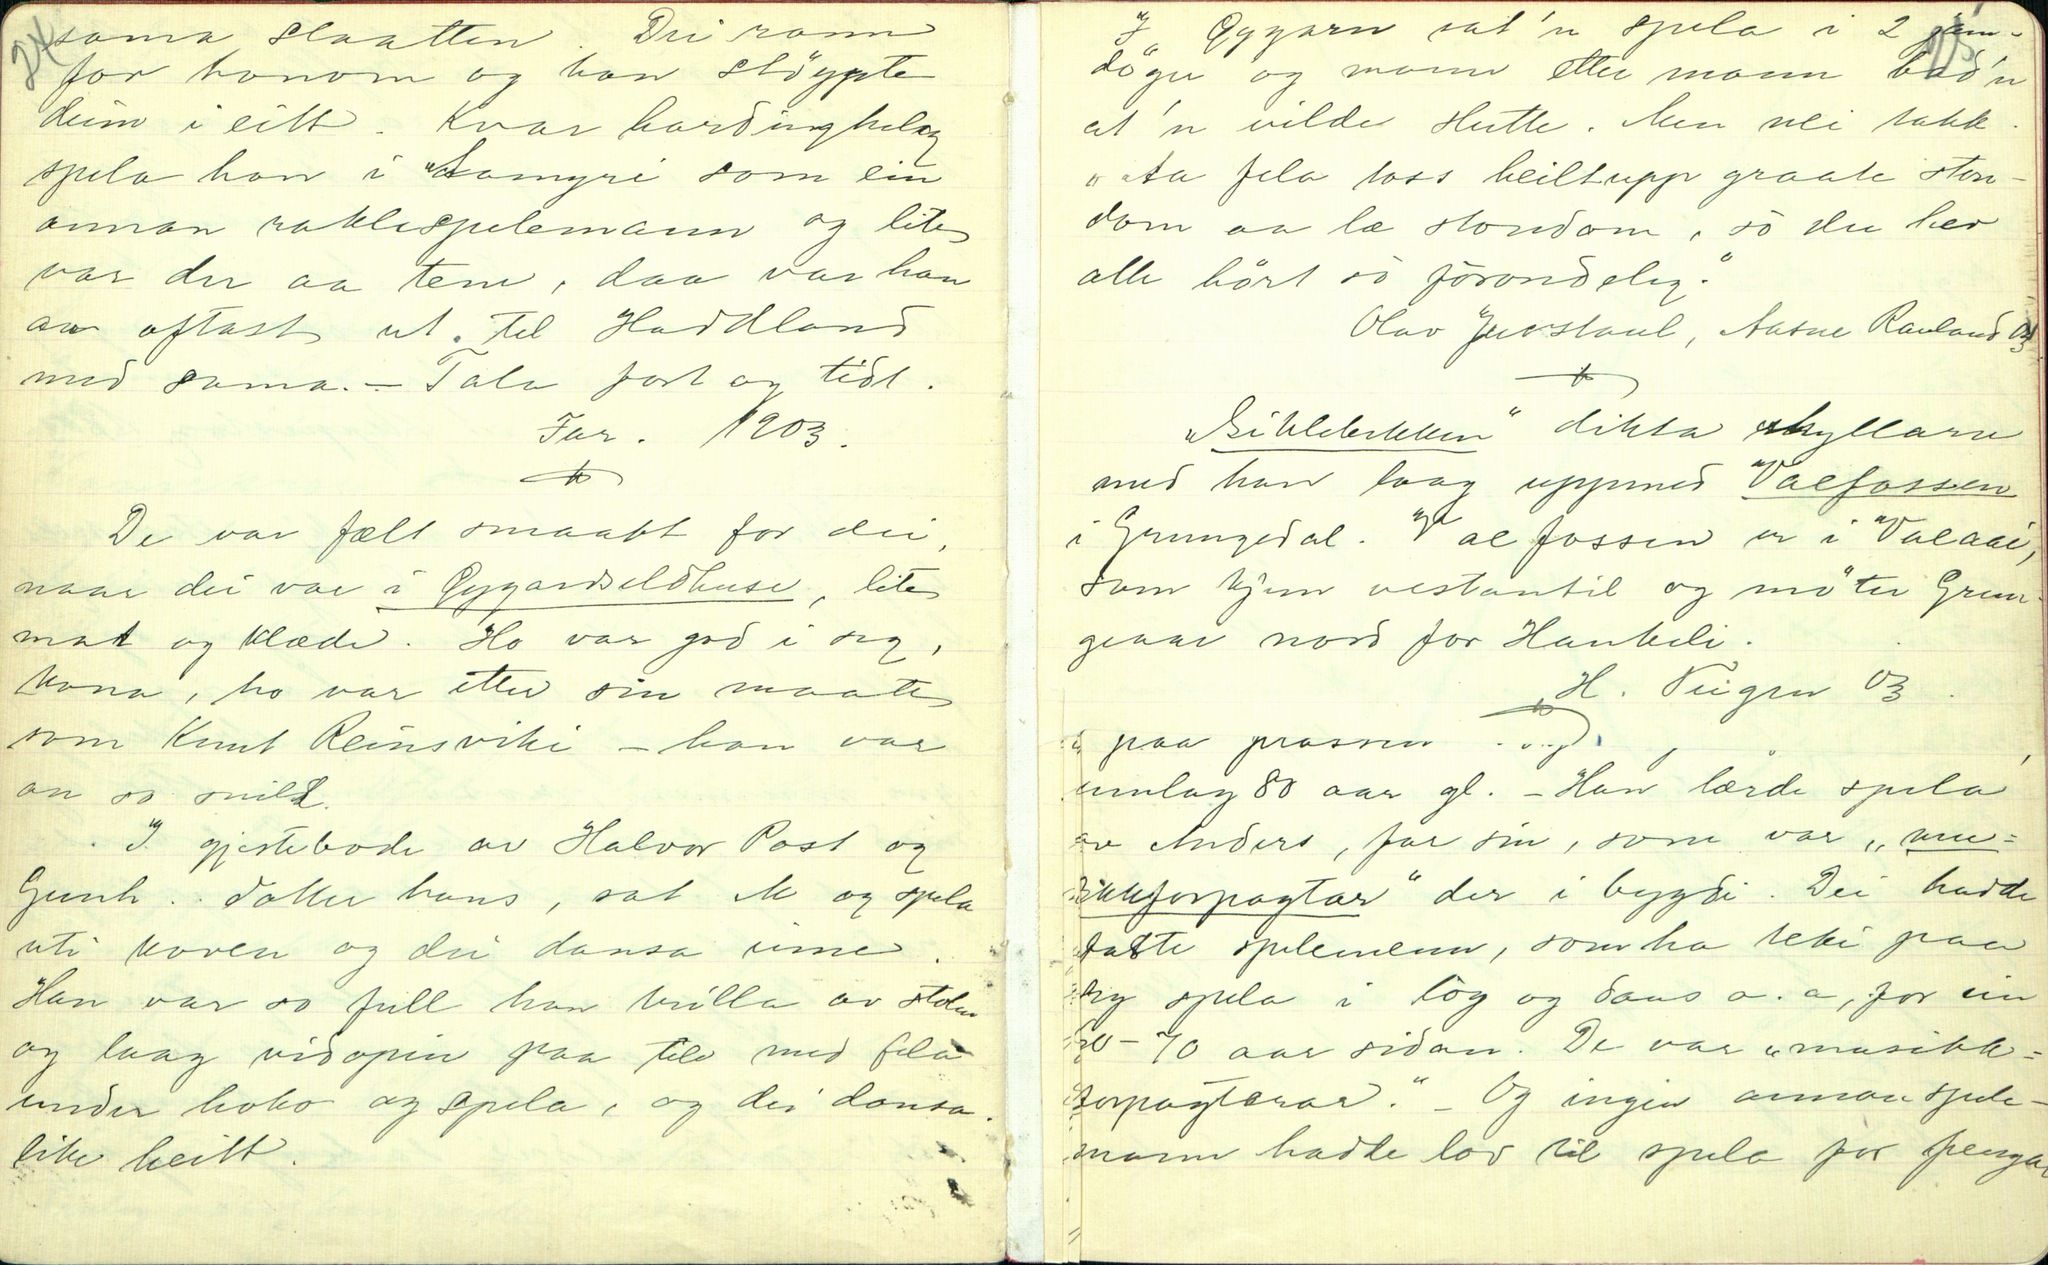 24
sama slaatten. Dei rann
for honom og han støypte
deim i eitt. Kvar hardinghelg
spela han i "Aamyri som ein
annan raklespelemann og lite
var der aa tene, daa var han
an oftast ut. til Haddland
med sama. – Tala fort og tidt.
Far. 1903.
De var fælt smaatt for dei,
naar dei var i Gygardseldhuse, lite
mat og klæde. Ho var god i seg,
kona, ho var etter sin maate
som Knut Reinsviki – han var
an so snild.
I gjestebode av Halvor Post og
Gunh. dotter hans, sat M og spela
uti koven og dei dansa inne.
Han var so full han trilla av stolen
og laag vidopin paa tile med fela
under hoko og spela, og dei dansa
like heitt.
25
I Gygarn sat'n spela i 2 jam-
døgr og mann etter mann bad'n
at'n vilde slutte. Men nei takk.
"Aa fela toss heiltupp graate ston-
dom aa læ stondom, sò du hev
alle hørt sò fòrondeleg."
Olav Juvstaul, Aasne Rauland 03
"Siklebekken" dikta myllaren
med han laag uppmed Valfossen
i Grungedal. Valfossen er i Valaai,
som kjem vestantil og møter Grun-
geaai nord for Haukeli.
H. Teigen 03.
paa prassen
umlag 80 aar gl. – Han lærde spela
av Anders, far sin, som var "mu-
sikkforpagtar" der i bygdi. Dei hadde
faste spelemenn, som ha teki paa
seg spela i lòg og dans o. a, for ein
60–70 aar sidan. De var "musikk-
forpagtarar." – Og ingen annan spele-
mann hadde lov til spela for pengar